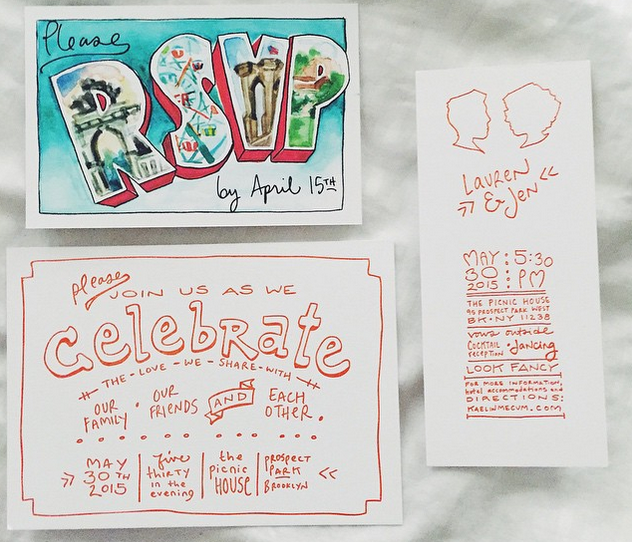 Please
RSVP
by April 15TH
please
JOIN US AS WE
Celebrate
THE-LOVE-WE-SHARE-WITH
OUR FAMILY · OUR FRIENDS AND EACH OTHER.
MAY 30TH 2015
five thirty in the evening
the picnic HOUSE
PROSPECT PARK BROOKLYN
LAUREN
& JEN
MAY 30 2015 : 5:30 PM
THE PICNIC HOUSE
95 PROSPECT PARK WEST
BK·NY 11238
vows outside
COCKTAIL RECEPTION · dancing
LOOK FANCY
FOR MORE INFORMATION,
hotel accommodations and
DIRECTIONS:
KAELINMECUM.COM